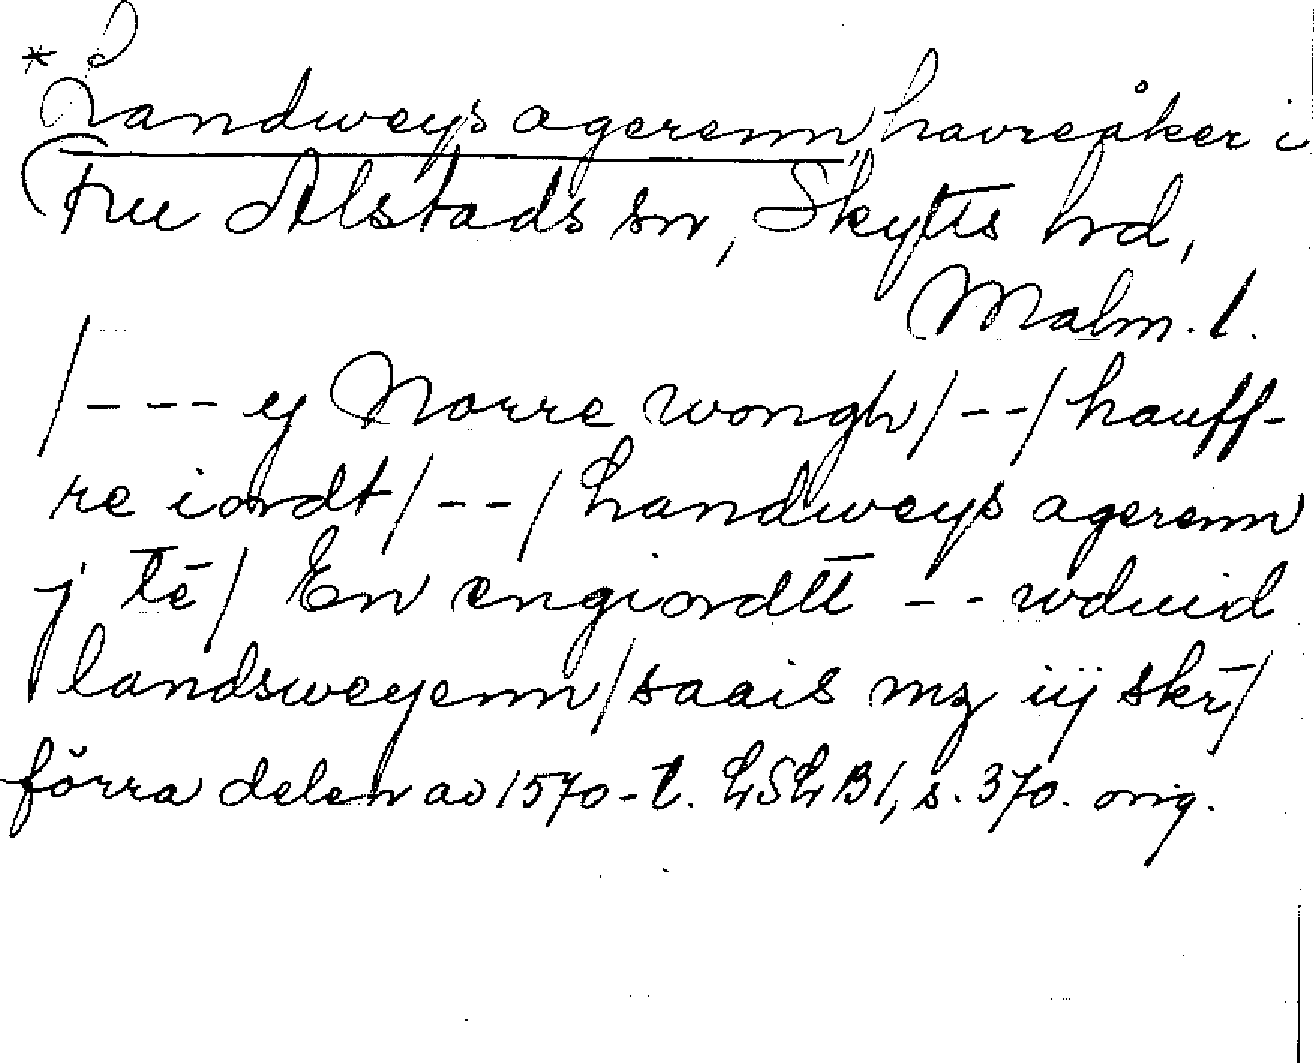 * L
Landweys agerenn, havreåker i
Fru Alstads sn, Skytts hd,
Malm. l.
/--- y Norre wongh/--/hauff-
re iordt/--/handweys agerenn
j tē/ En engiordtt -- wduid
landsweyenn/saais mz iij skr̄/
förra delen av 1570-t. LSLB1, s. 370. orig.